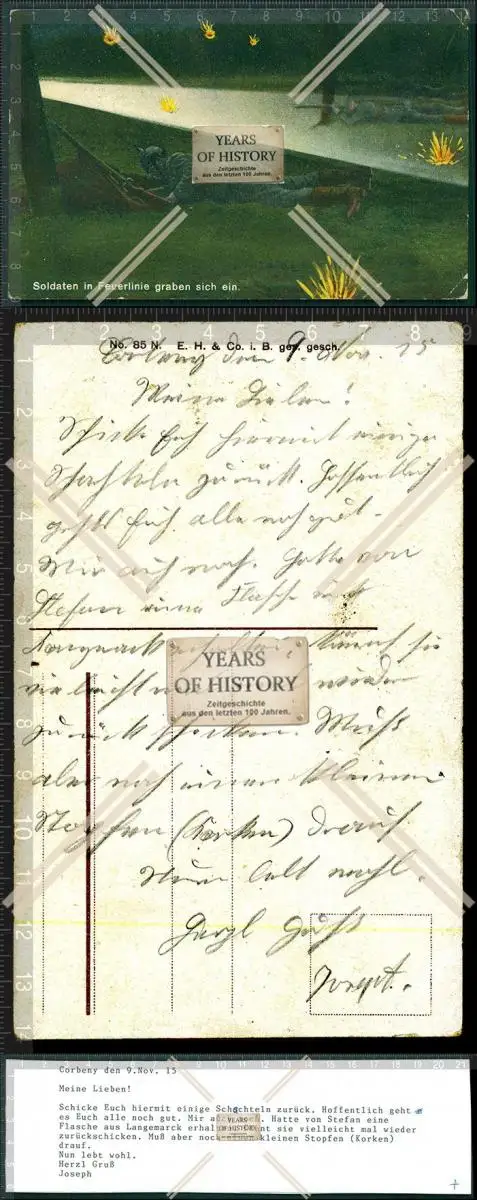 YEARS
OF HISTORY
Zeitgeschichte
aus den letzten 100 Jahren.
Soldaten in Feuerlinie graben sich ein.
No. 85 N. E. H. & Co. i. B. ges. gesch.
Corbeny den 9. Nov. 15
Meine Lieben!
Schicke Euch hiermit einige
Schachteln zurück. Hoffentlich
geht es Euch alle noch gut.
Mir auch noch. Hatte von
Stefan eine Flasche aus
Langemarck könnt sie
vielleicht wieder
zurück schicken. Muß
aber noch einen kleinen
Stopfen (Korken) drauf.
Nun lebt wohl.
Herzl Gruß
Joseph.
YEARS
OF HISTORY
Zeitgeschichte
aus den letzten 100 Jahren.
Corbeny den 9.Nov. 15
Meine Lieben!
Schicke Euch hiermit einige Schachteln zurück. Hoffentlich geht
es Euch alle noch gut. Mir noch. Hatte von Stefan eine
Flasche aus Langemarck sie vielleicht mal wieder
zurückschicken. Muß aber noch kleinen Stopfen (Korken)
drauf.
Nun lebt wohl.
Herzl Gruß
Joseph
YEARS
OF HISTORY